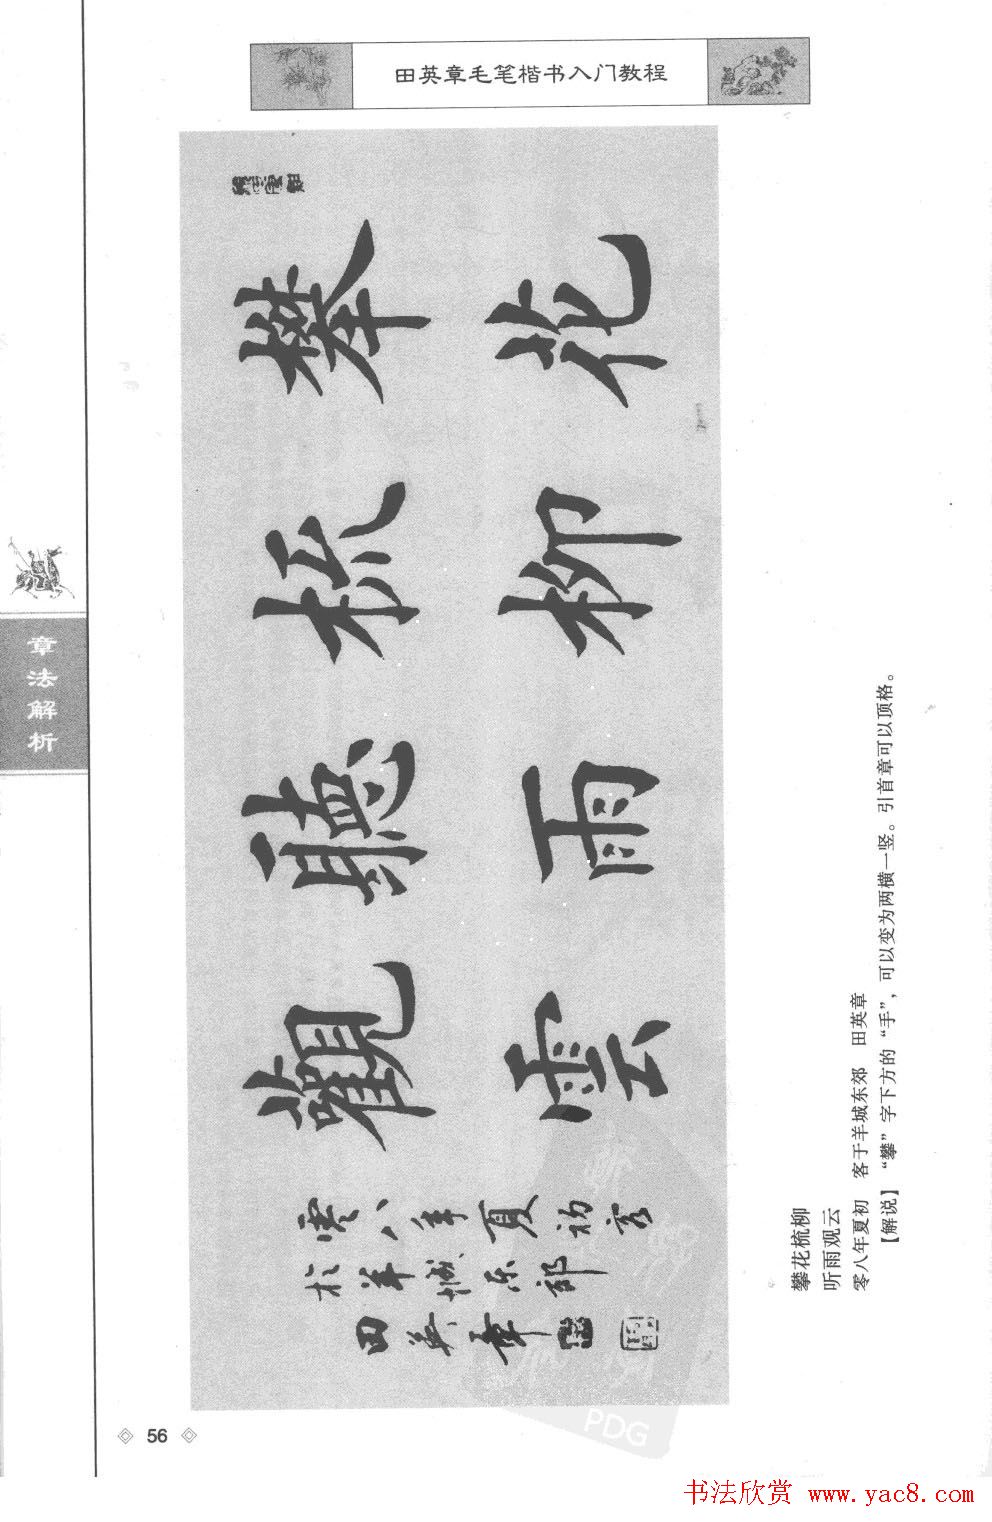 田英章毛笔楷书入门教程
章法解析
攀花
梳柳
聽雨
觀雲
零八年夏初客
於羊城东郊
田英章
攀花梳柳
听雨观云
零八年夏初 客于羊城东郊 田英章
【解说】“攀”字下方的“手”，可以变为两横一竖。引首章可以顶格。
56
PDG
书法欣赏 www.yac8.com